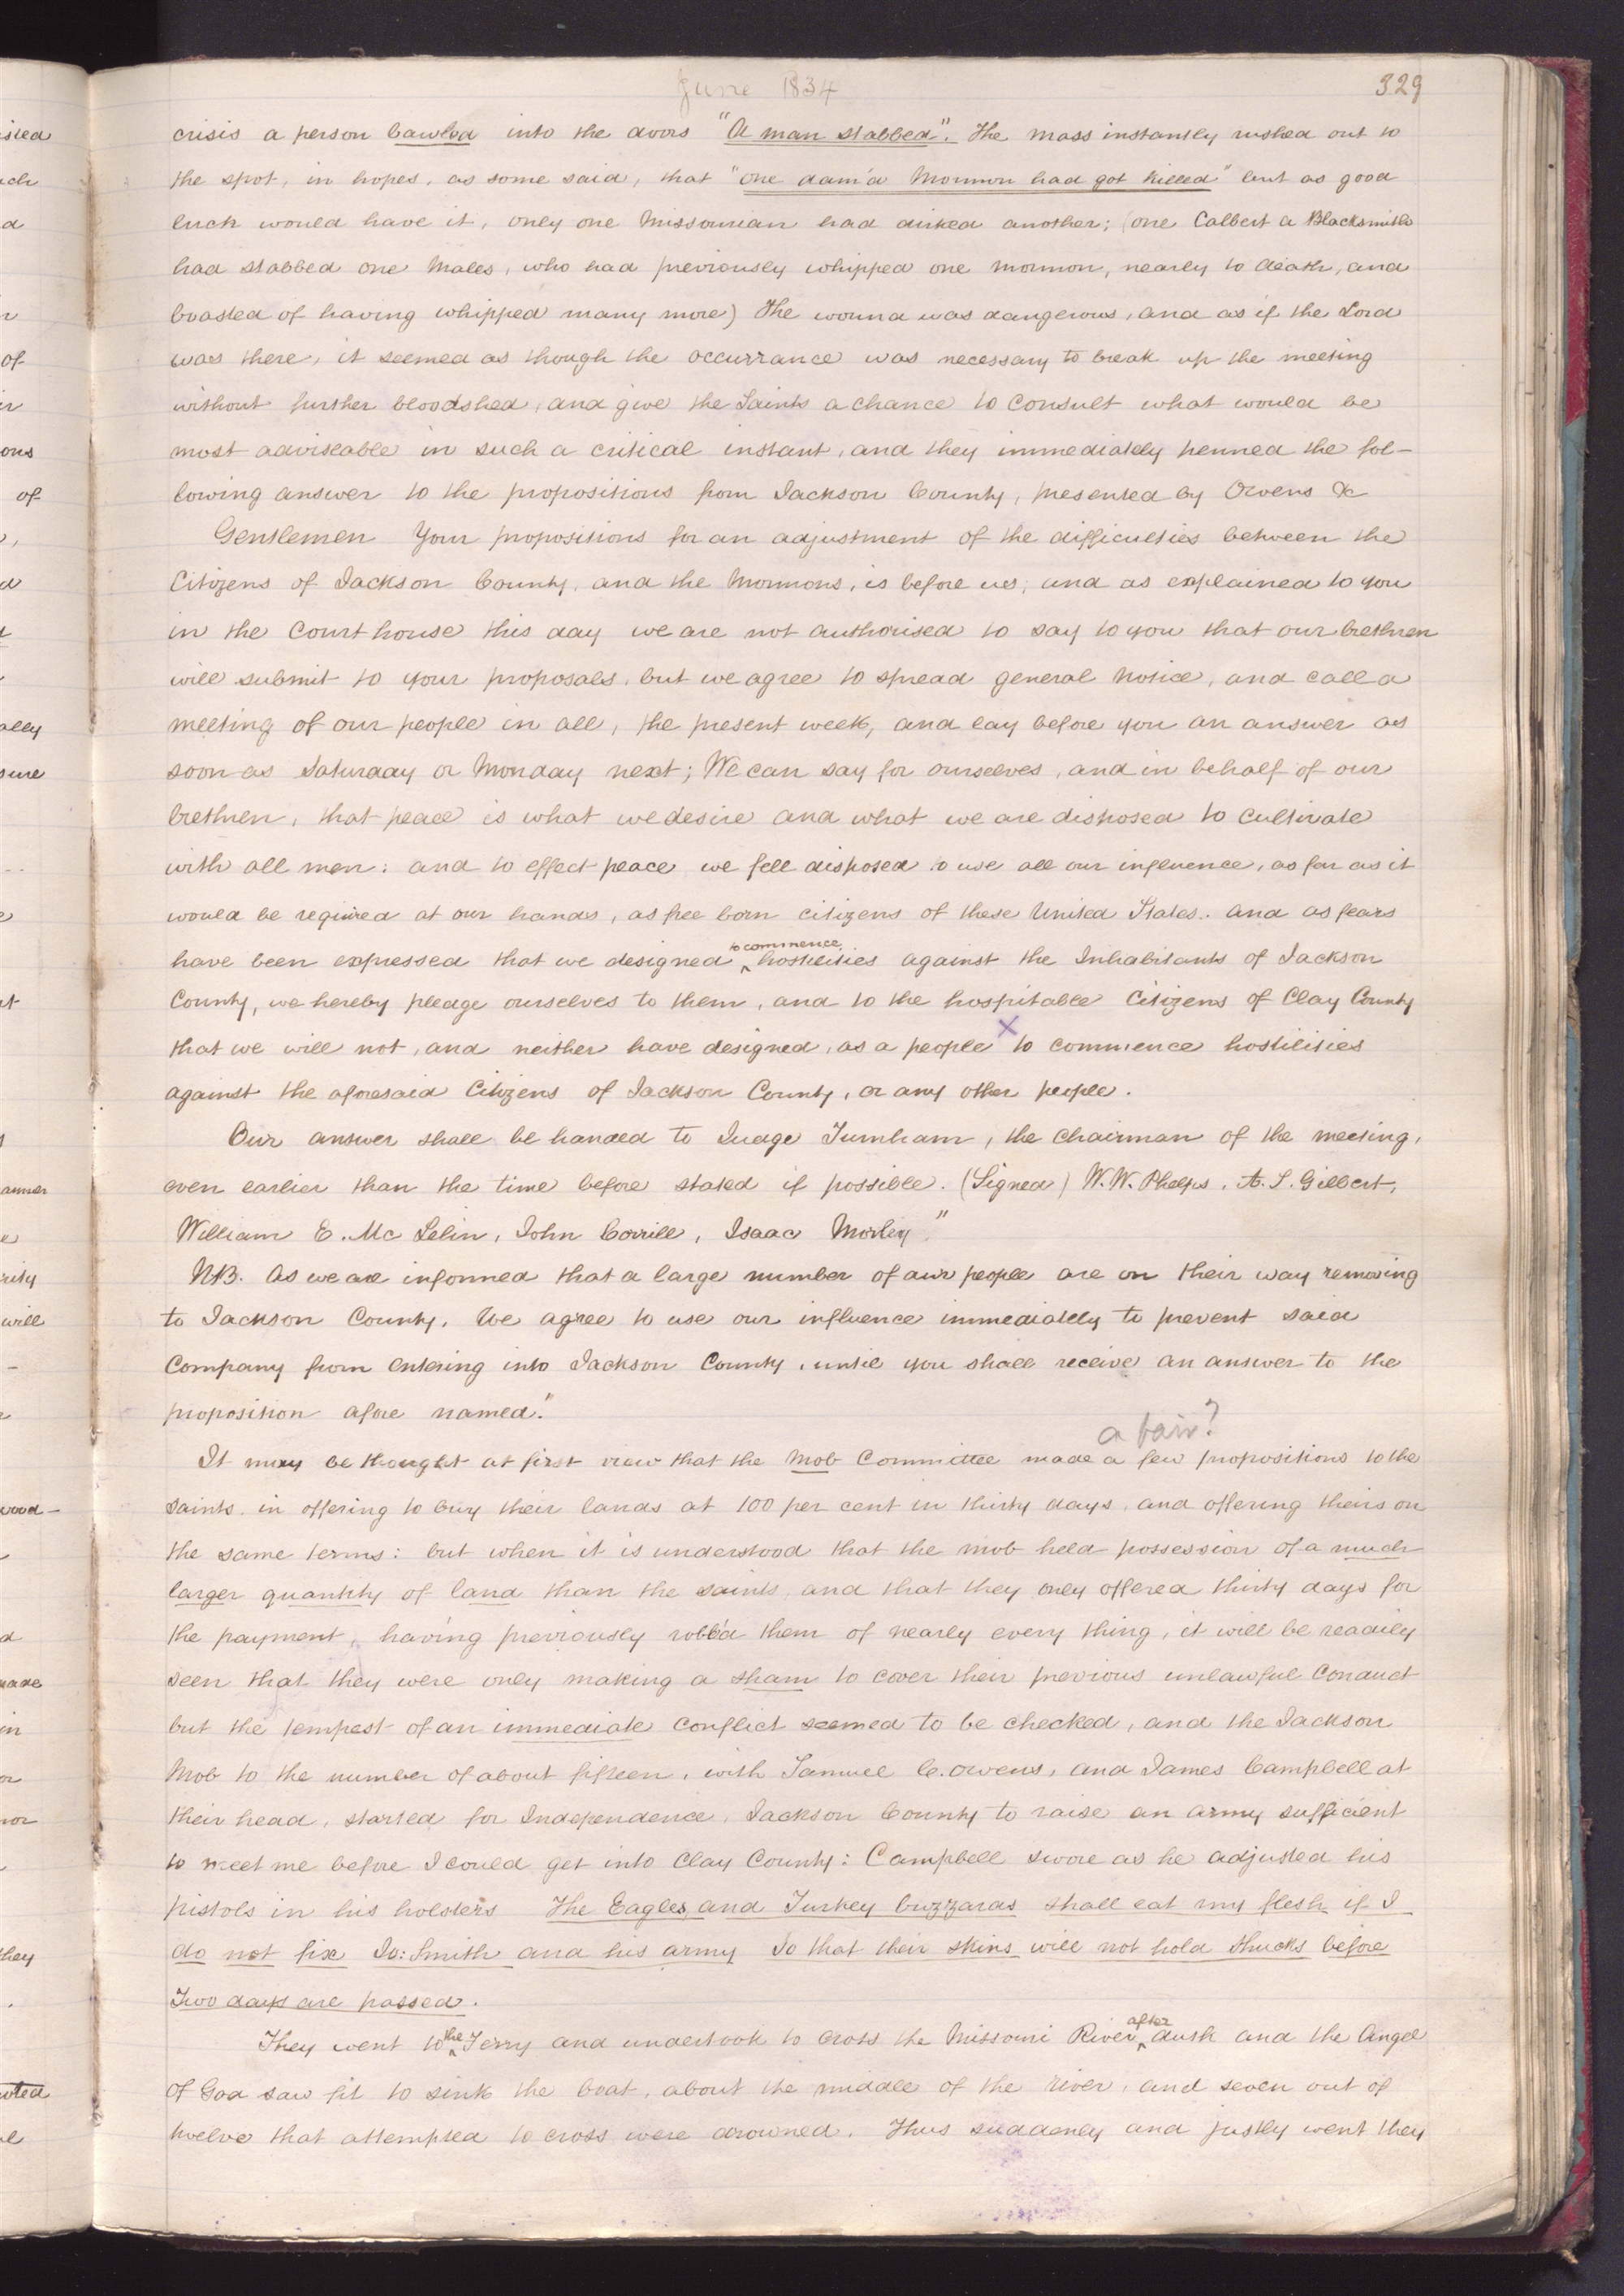 June 1834
329
crisis a person bawled into the doors "A man stabbed". The mass instantly rushed out to
the spot, in hopes, as some said, that "one dam'd Mormon had got killed" but as good
luck would have it, only one Missourian had dirked another; (one Calbert a Blacksmith
had stabbed one Males, who had previously whipped one mormon, nearly to death, and
boasted of having whipped many more) The wound was dangerous, and as if the Lord
was there, it seemed as though the occurrance was necessary to break up the meeting
without further bloodshed, and give the Saints a chance to consult what would be
most adviseable in such a critical instant, and they immediately penned the fol-
lowing answer to the propositions from Jackson County, presented by Owens &c
Gentlemen Your propositions for an adjustment of the difficulties between the
Citizens of Jackson County, and the Mormons, is before us; and as explained to you
in the Court house this day we are not authorised to say to you that our brethren
will submit to your proposals, but we agree to spread general notice, and call a
meeting of our people in all, the present week, and lay before you an answer as
soon as Saturday or Monday next; We can say for ourselves, and in behalf of our
brethren, that peace is what we desire and what we are disposed to cultivate
with all men: and to effect peace we fell disposed to use all our influence, as far as it
would be required at our hands, as free born citizens of these United States. and as fears
have been expressed that we designed to commence hostilities against the Inhabitants of Jackson
County, we hereby pledge ourselves to them, and to the hospitable Citizens of Clay County
that we will not, and neither have designed, as a people X to commence hostilities
against the aforesaid Citizens of Jackson County, or any other people.
Our answer shall be handed to Judge Turnham, the chairman of the meeting,
even earlier than the time before stated if possible. (Signed) W. W. Phelps, A. S. Gilbert,
William E. Mc Lelin, John Corrill, Isaac Morley"
NB. As we are informed that a large number of our people are on their way removing
to Jackson County. We agree to use our influence immediately to prevent said
Company from entering into Jackson County, until you shall receive an answer to the
proposition afore named."
a fair?
It may be thought at first view that the Mob Committee made a few propositions to the
saints, in offering to buy their lands at 100 per cent in thirty days, and offering theirs on
the same terms: but when it is understood that the mob held possession of a much
larger quantity of land than the saints, and that they only offered thirty days for
the payment, having previously robb'd them of nearly every thing, it will be readily
seen that they were only making a sham to cover their previous unlawful conduct
but the tempest of an immediate conflict seemed to be checked, and the Jackson
Mob to the number of about fifteen, with Samuel C. Owens, and James Campbell at
their head, started for Independence, Jackson County to raise an army sufficient
to meet me before I could get into Clay County: Campbell swore as he adjusted his
pistols in his holsters The Eagles and Turkey buzzards shall eat my flesh if I
do not fix Jo: Smith and his army So that their skins will not hold shucks before
Two days are passed.
They went to the Ferry and undertook to cross the Missouri River after dusk and the Angel
of God saw fit to sink the boat, about the middle of the river, and seven out of
twelve that attempted to cross were drowned. Thus suddenly and justly went they